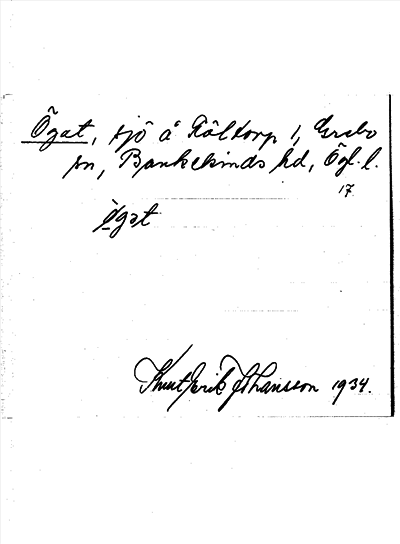 Ögat, sjö å Kåltorp 1, Grebo
sn, Bankekinds hd, Ögl. l.
17
ögat
Knut Erik Johansson 1934.